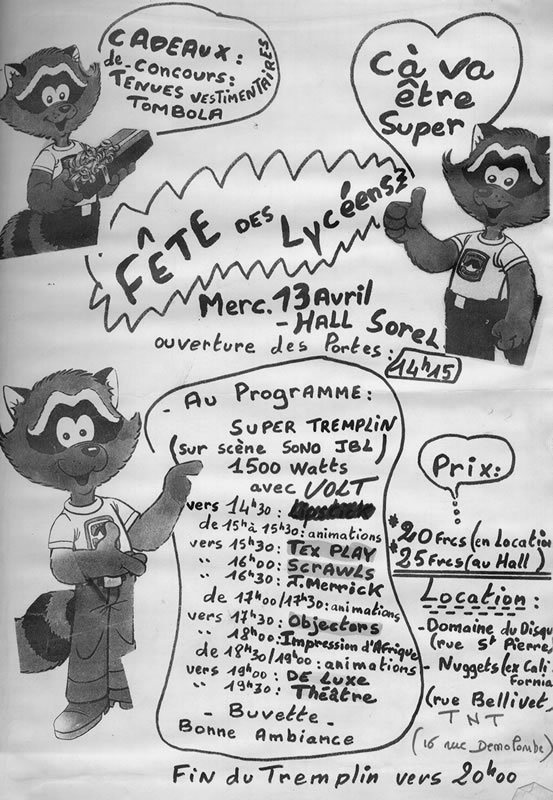 CADEAUX:
de concours:
TENUES VESTIMENTAIRES
TOMBOLA
Cà va
être
Super
FÊTE DES Lycéens
Merc. 13 Avril
- HALL Sorel
ouverture des Portes: 14h15
- Au Programme:
SUPER TREMPLIN
(sur scène SONO JBL)
1500 Watts
avec VOLT
vers 14h30:
de 15h à 15h30: animations
vers 15h30: TEX PLAY
" 16h00: SCRAWLS
" 16h30: J. Merrick
de 17h00/17h30: animations
vers 17h30: Objectors
" 18h00: Impression d'Afrique
de 18h30/19h00: animations
vers 19h00: DE LUXE
" 19h30: Théâtre
- Buvette -
Bonne Ambiance
Prix:
* 20 Frcs (en Location
* 25 Frcs (au Hall)
Location:
- Domaine du Disqu
(rue St Pierre)
- Nuggets (ex Cali
Fornia
(rue Bellivet)
TNT
(16 rue Demolombe)
Fin du Tremplin vers 20h00